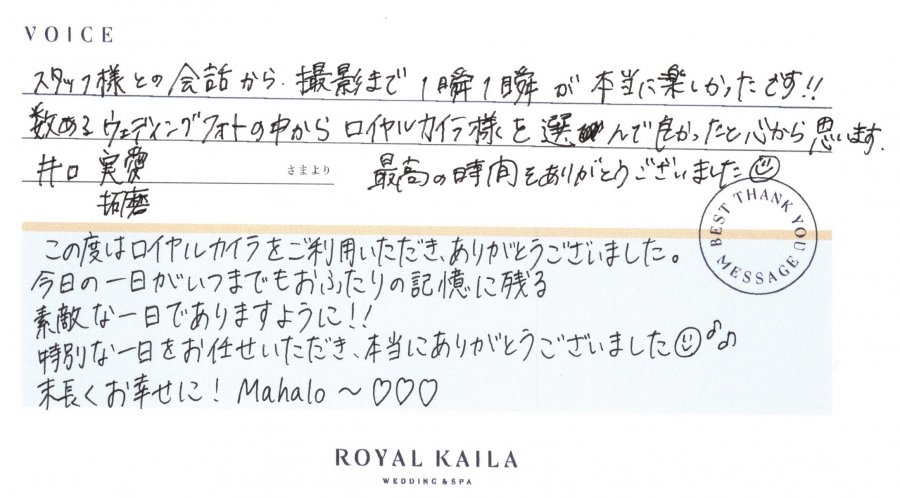 VOICE
スタッフ様との会話から、撮影まで1瞬1瞬が本当に楽しかったです!!
数あるウェディングフォトの中からロイヤルカイラ様を選んで良かったと心から思います。
井口 実愛 さまより 最高の時間をありがとうございました☺
拓磨
BEST THANK YOU MESSAGE
この度はロイヤルカイラをご利用いただき、ありがとうございました。
今日の一日がいつまでもおふたりの記憶に残る
素敵な一日でありますように!!
特別な一日をお任せいただき、本当にありがとうございました☺♪♪
末長くお幸せに! Mahalo ～♡♡♡
ROYAL KAILA
WEDDING & SPA